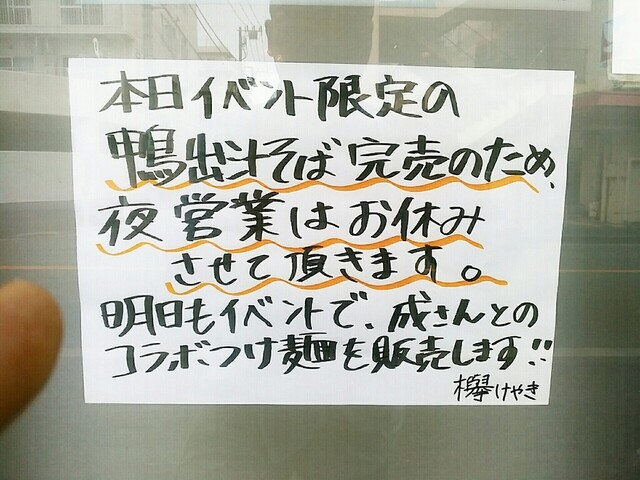 本日イベント限定の
鴨出汁そば完売のため、
夜営業はお休み
させて頂きます。
明日もイベントで、成さんとの
コラボつけ麺を販売します!!
欅けやき